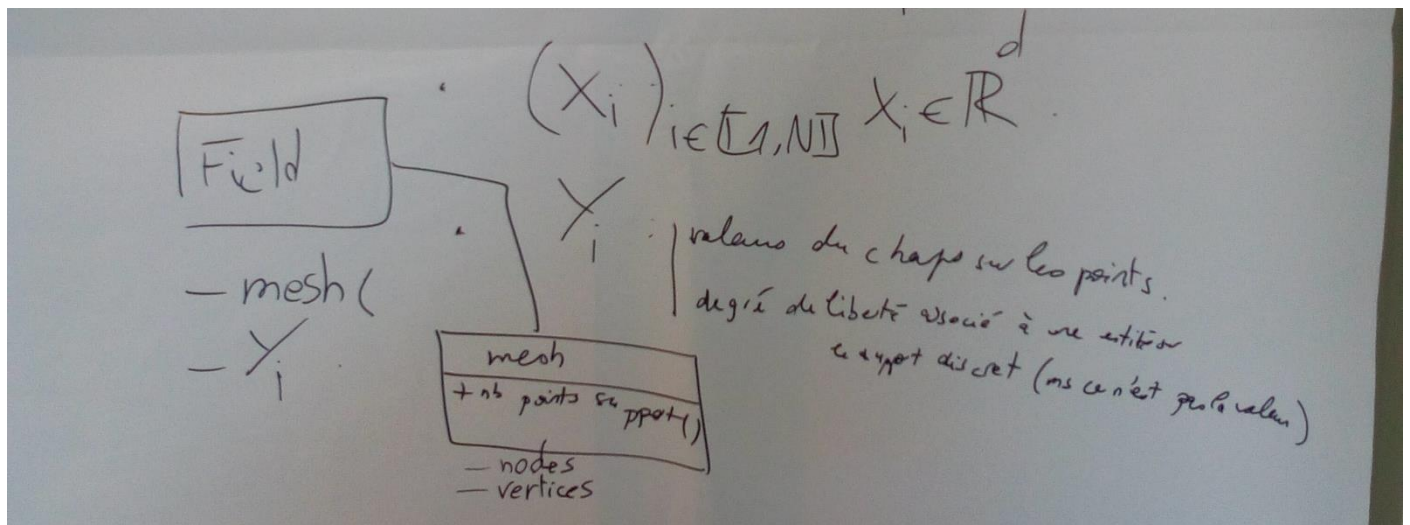 (X_i)_{i∈⟦1,N⟧} X_i ∈ ℝ^d
Field
- mesh(
- Y_i
Y_i : valeurs du chaps sur les points.
degré de liberté associé à une entité sur
le support discret (ms ce n'est pas la valeur)
mesh
+ nb points support()
- nodes
- vertices